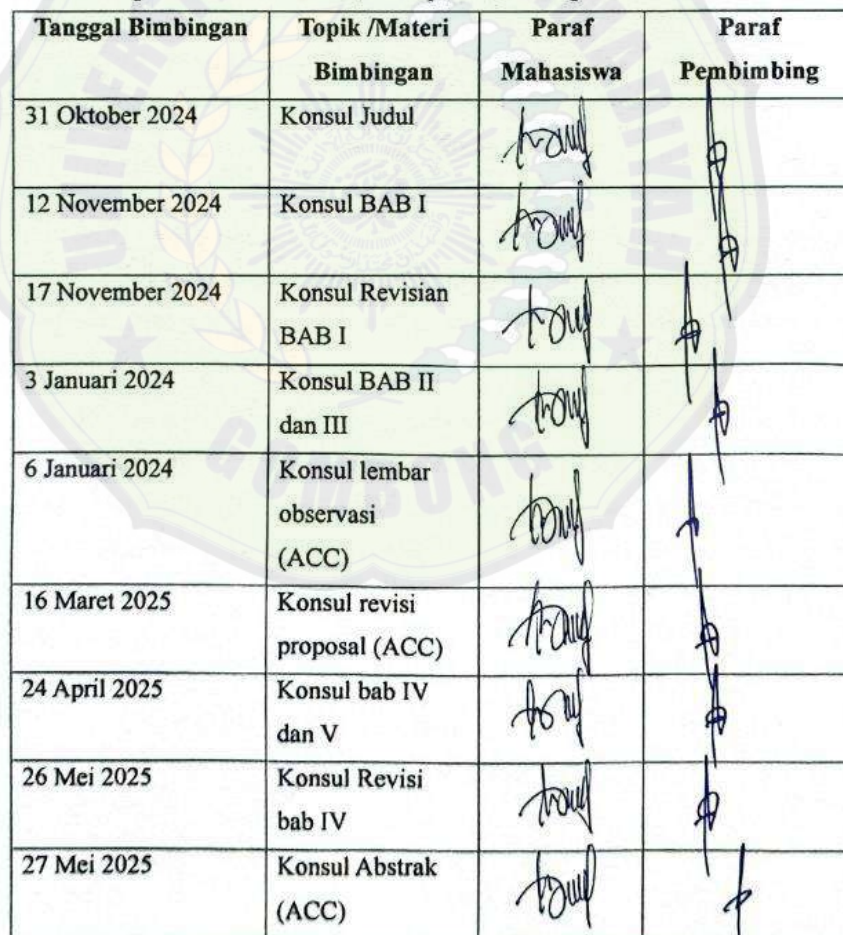 Tanggal Bimbingan Topik /Materi Bimbingan Paraf Mahasiswa Paraf Pembimbing
31 Oktober 2024 Konsul Judul
12 November 2024 Konsul BAB I
17 November 2024 Konsul Revisian
BAB I
3 Januari 2024 Konsul BAB II
dan III
6 Januari 2024 Konsul lembar
observasi
(ACC)
16 Maret 2025 Konsul revisi
proposal (ACC)
24 April 2025 Konsul bab IV
dan V
26 Mei 2025 Konsul Revisi
bab IV
27 Mei 2025 Konsul Abstrak
(ACC)
GOMBONG